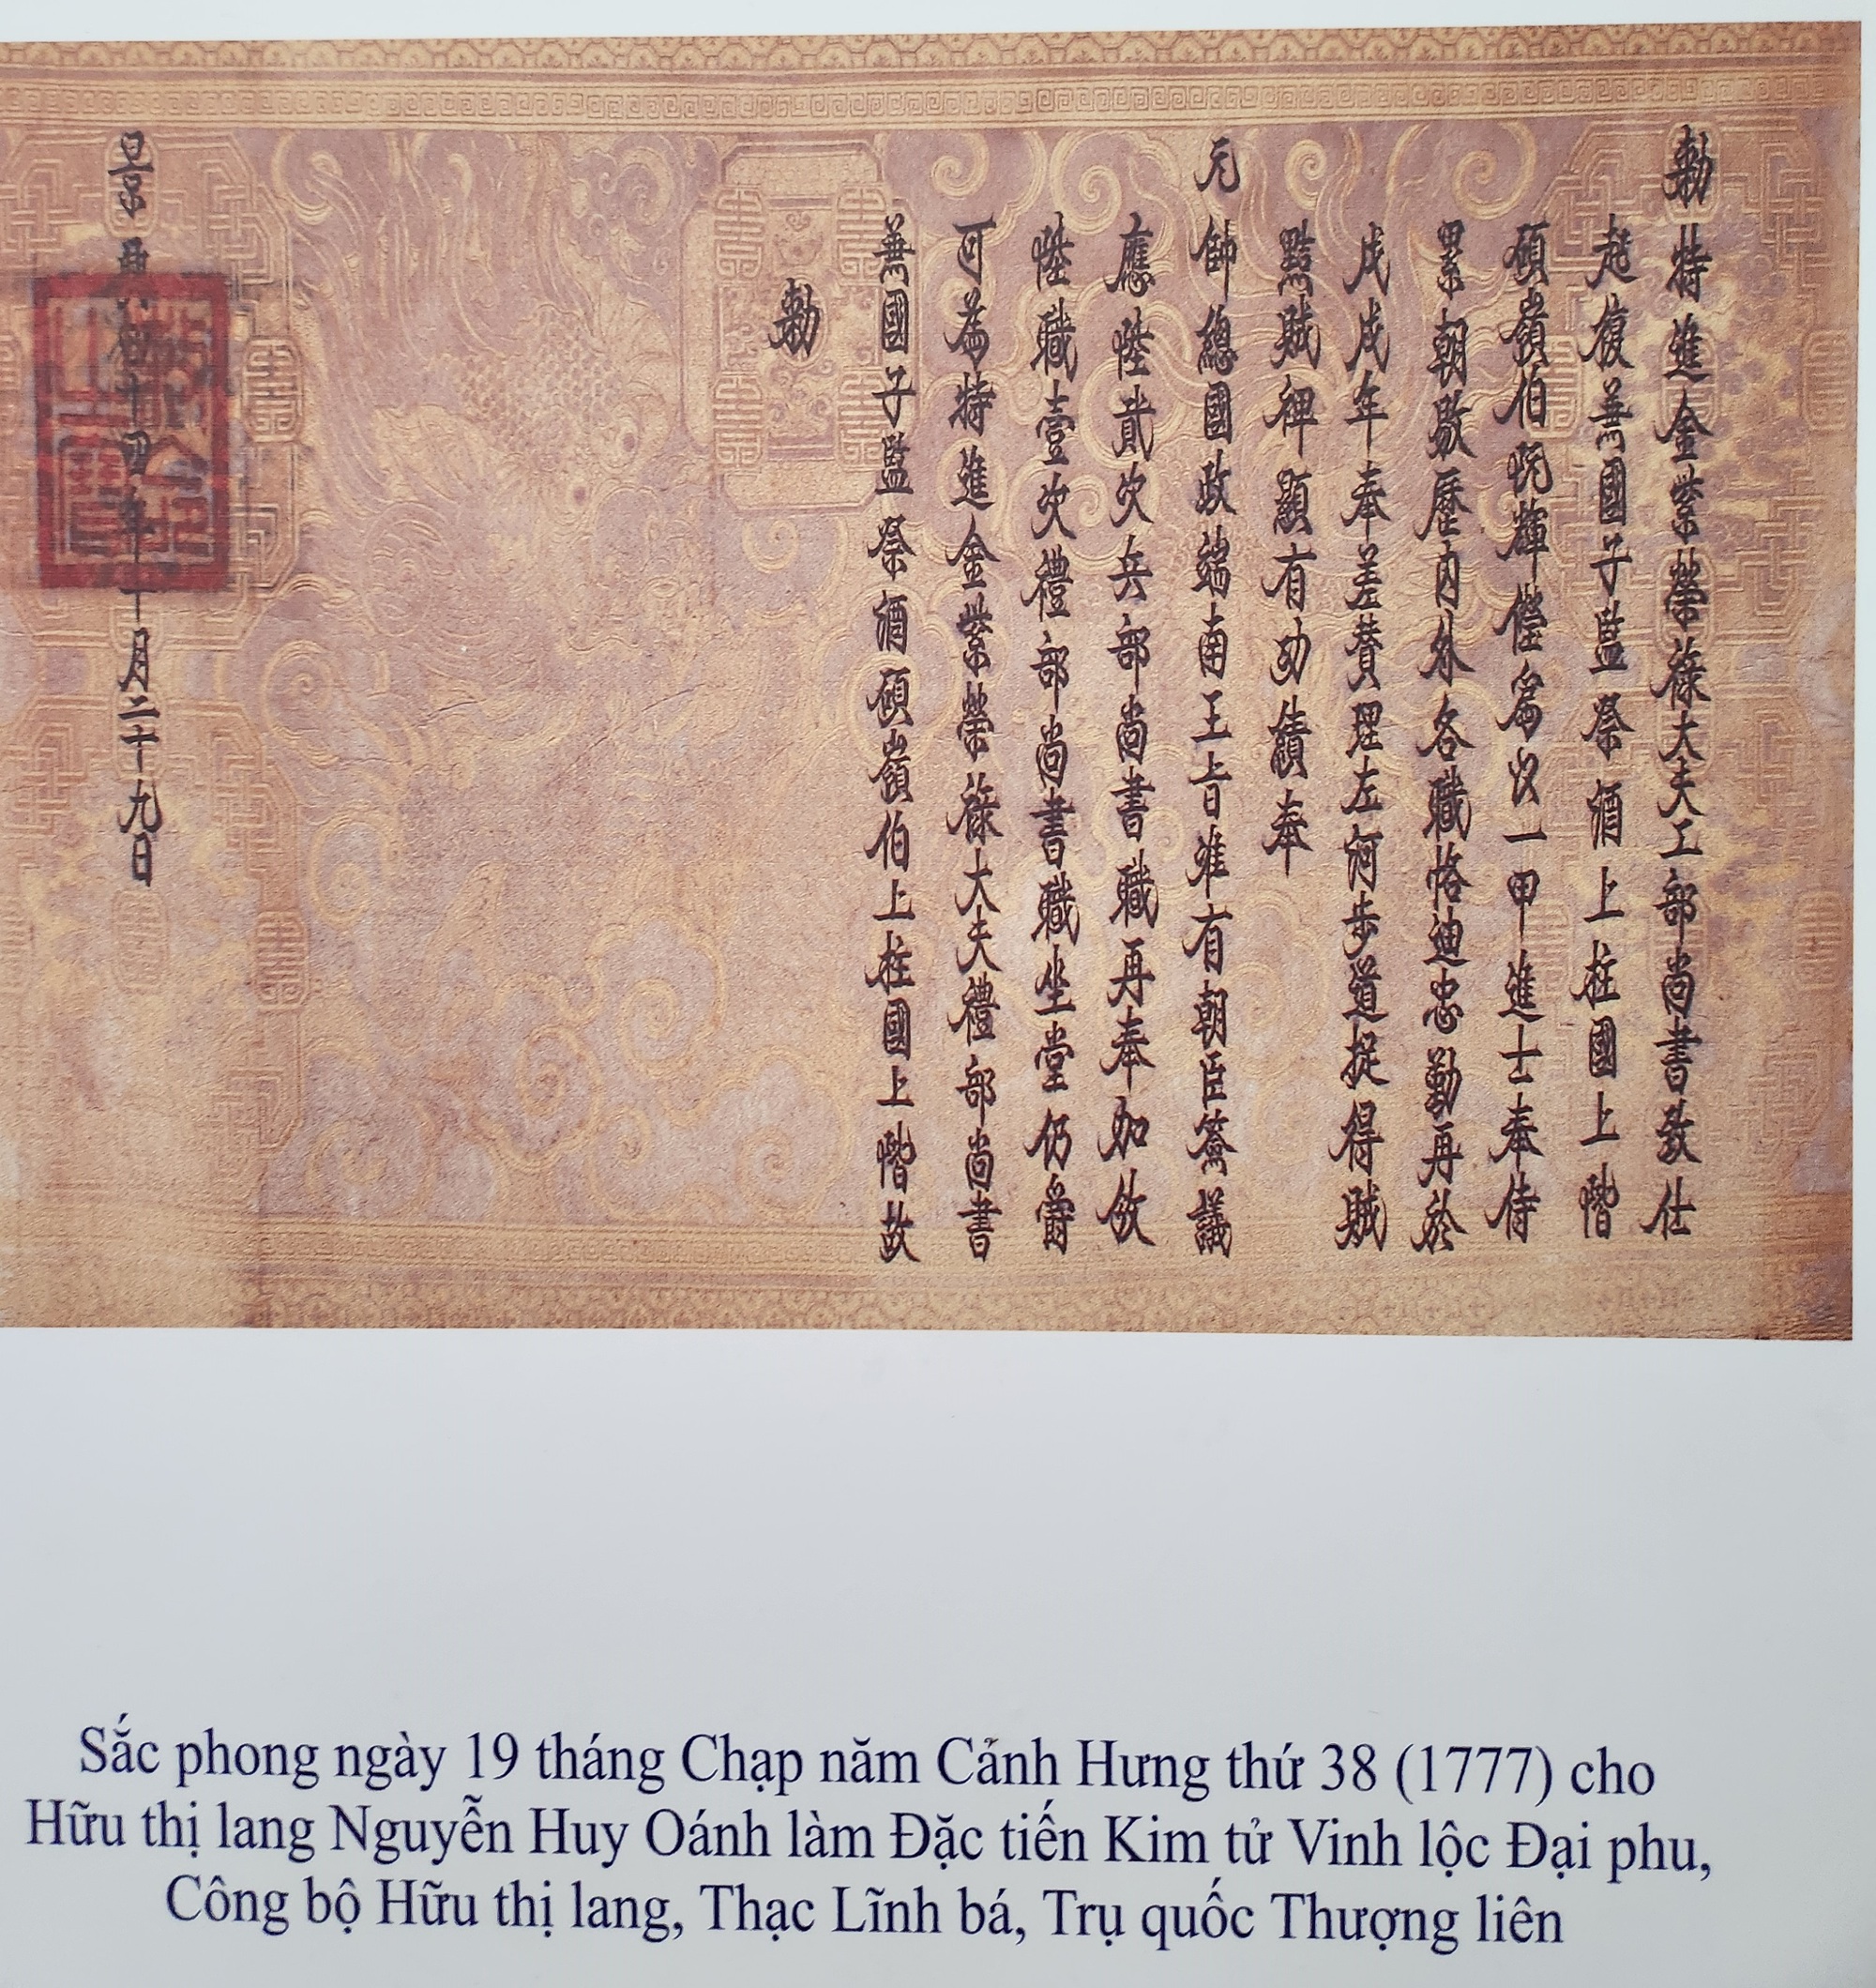 勅特進金紫榮祿大夫工部尚書致仕
起復兼國子監祭酒上柱國上階
碩嶺伯阮輝僅為以一甲進士奉侍
累朝敭歷內外各職恪迪忠勤再於
戊戌年奉差贊理左河步道捉得賊
黠賊裨顯有功績奉
元帥總國政端南王旨准有朝臣僉議
應陞貳次兵部尚書職再奉加敘
陞職壹次禮部尚書職坐堂仍爵
可為特進金紫榮祿大夫禮部尚書
兼國子監祭酒碩嶺伯上柱國上階故
勅
景興四十四年 月二十九日
Sắc phong ngày 19 tháng Chạp năm Cảnh Hưng thứ 38 (1777) cho
Hữu thị lang Nguyễn Huy Oánh làm Đặc tiến Kim tử Vinh lộc Đại phu,
Công bộ Hữu thị lang, Thạc Lĩnh bá, Trụ quốc Thượng liên